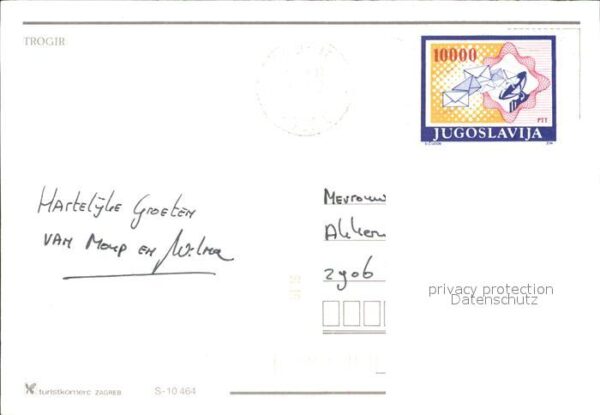 TROGIR
10000
PTT
JUGOSLAVIJA
Hartelijke Groeten
VAN en Wilma
Mevrouw
Akker
2906
privacy protection
Datenschutz
turistkomerc ZAGREB S-10 464